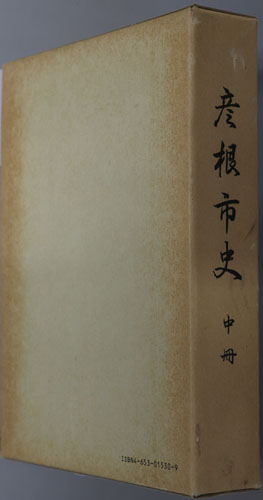 彦根市史 中冊
ISBN4-653-01530-9